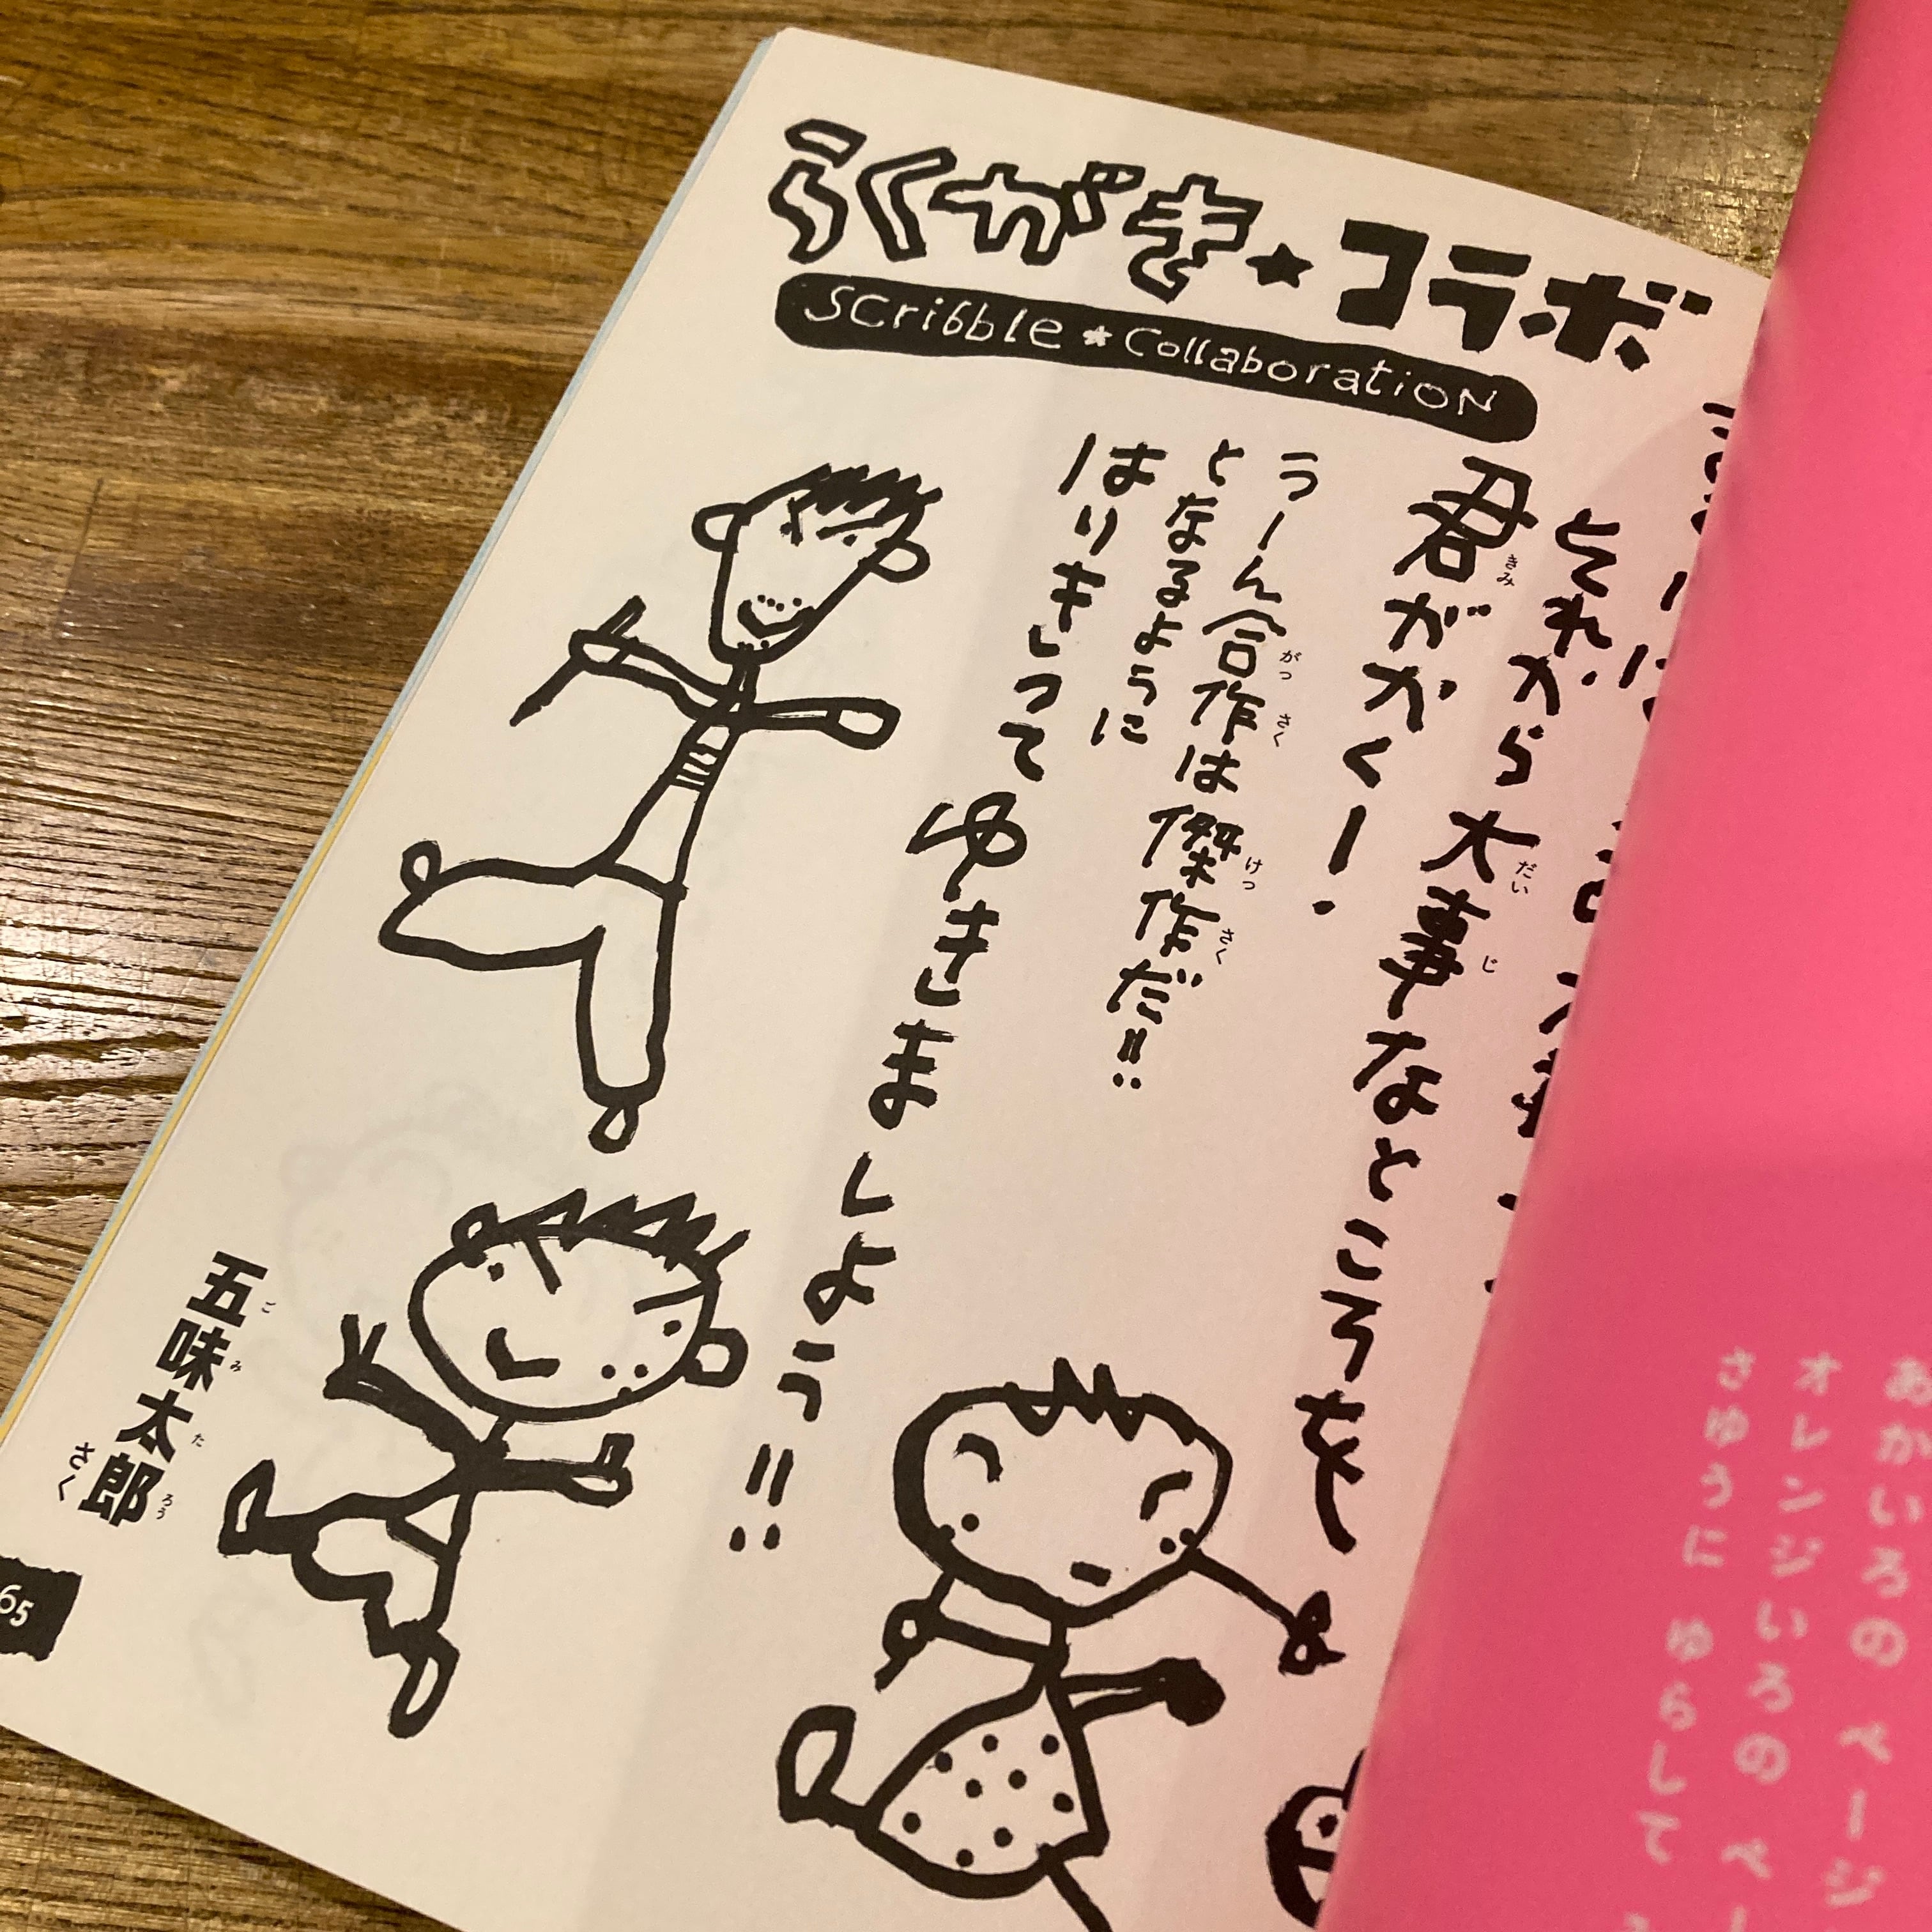 らくがき★コラボ
Scribble★Collaboration
それから大事なところを
君がかくー！
うーん合作は傑作だ!!
となるように
はりきって
ゆきましょう!!
五味太郎
さく
65
あかいろの ページ
オレンジいろの ペー
さゆうに ゆらして